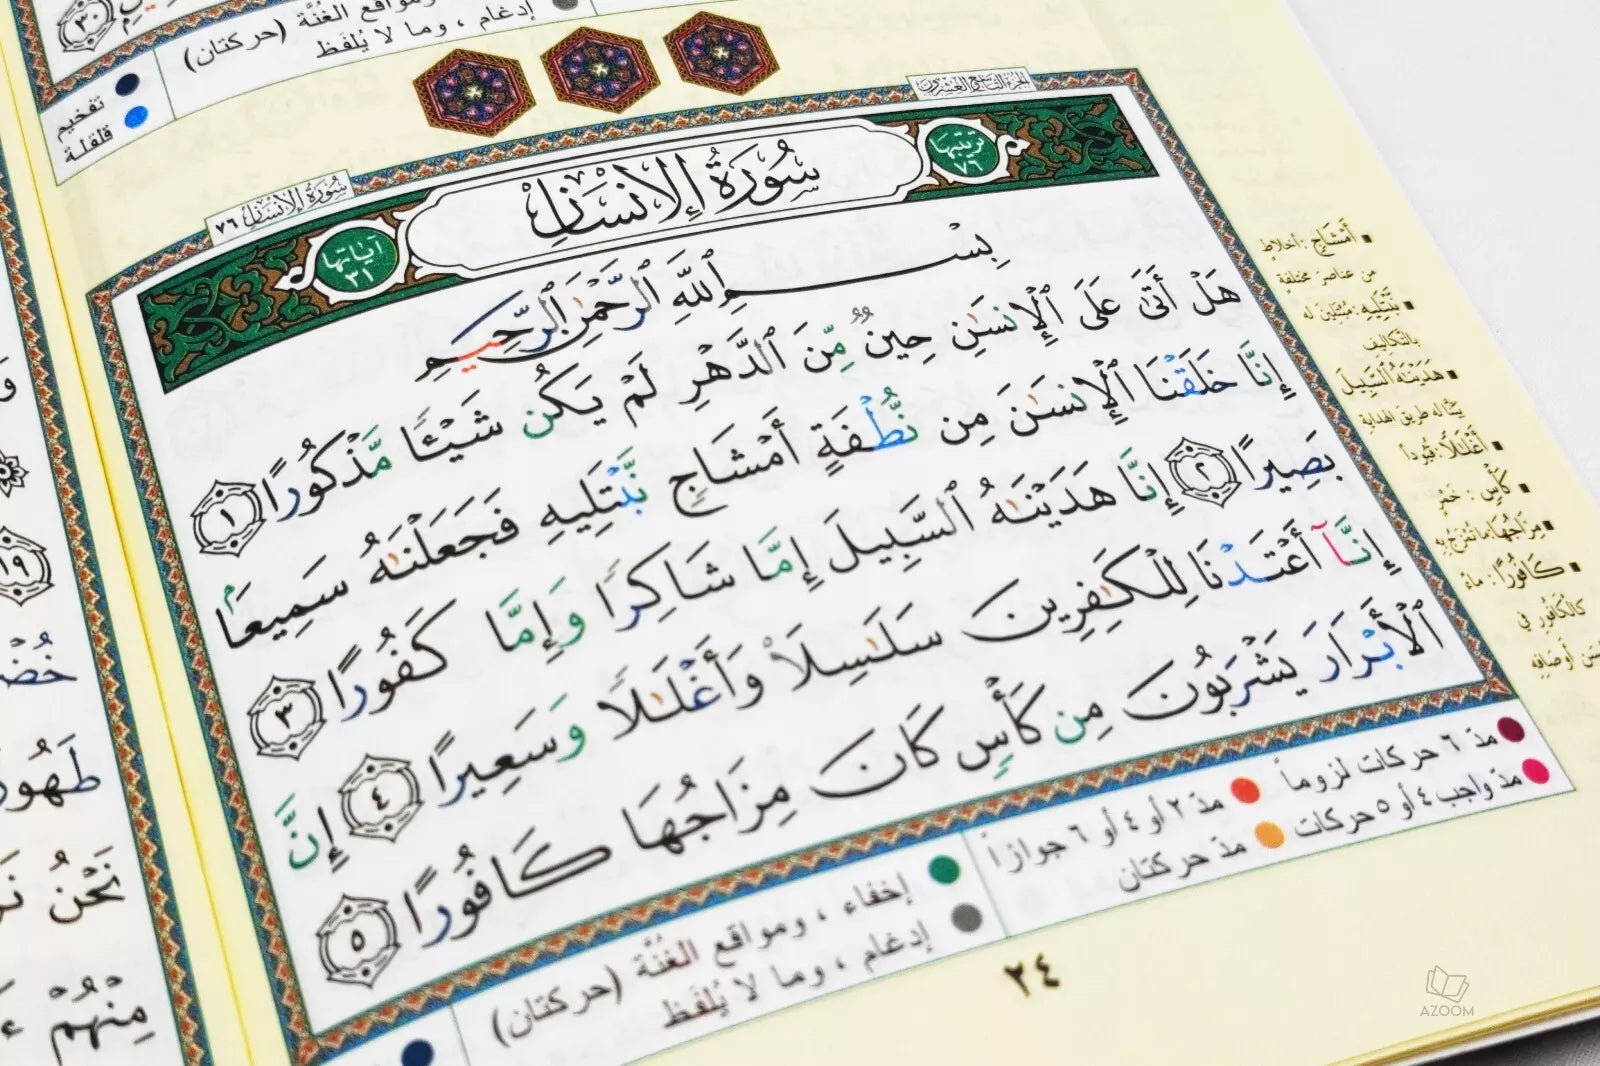 إدغام ، وما لا يُلفَظ
ومواقع الغُنَّة (حركتان)
تفخيم
قلقلة
الجزء التاسع والعشرون
سُورَةُ الإِنسَانِ ٧٦
ترتيبها
٧٦
سُورَةُ الإِنسَانِ
آياتها
٣١
بِسْمِ ٱللَّهِ ٱلرَّحْمَٰنِ ٱلرَّحِيمِ
هَلْ أَتَىٰ عَلَى ٱلْإِنسَٰنِ حِينٌ مِّنَ ٱلدَّهْرِ لَمْ يَكُن شَيْـًٔا مَّذْكُورًا ١
إِنَّا خَلَقْنَا ٱلْإِنسَٰنَ مِن نُّطْفَةٍ أَمْشَاجٍ نَّبْتَلِيهِ فَجَعَلْنَٰهُ سَمِيعًۢا
بَصِيرًا ٢ إِنَّا هَدَيْنَٰهُ ٱلسَّبِيلَ إِمَّا شَاكِرًا وَإِمَّا كَفُورًا ٣
إِنَّآ أَعْتَدْنَا لِلْكَٰفِرِينَ سَلَٰسِلَا۟ وَأَغْلَٰلًا وَسَعِيرًا ٤ إِنَّ
ٱلْأَبْرَارَ يَشْرَبُونَ مِن كَأْسٍ كَانَ مِزَاجُهَا كَافُورًا ٥
أَمْشَاجٍ: أخلاطٍ
من عناصر مختلفة
نَّبْتَلِيهِ: مُبْتَلِينَ له
بالتكاليف
هَدَيْنَٰهُ ٱلسَّبِيلَ
بيَّنَّا له طريق الهداية
أَغْلَٰلًا: قيوداً
كَأْسٍ: خمرٍ
مِزَاجُهَا: ما تُمْزَجُ به
كَافُورًا: ماءً
كالكافور في
أوصافه
مدّ ٦ حركات لزوماً
مدّ ٢ أو ٤ أو ٦ جوازاً
مدّ واجب ٤ أو ٥ حركات
مدّ حركتان
إخفاء ، ومواقع الغُنَّة (حركتان)
إدغام ، وما لا يُلفَظ
٢٤
١٩
نَحْنُ
مِنْهُمْ
AZOOM